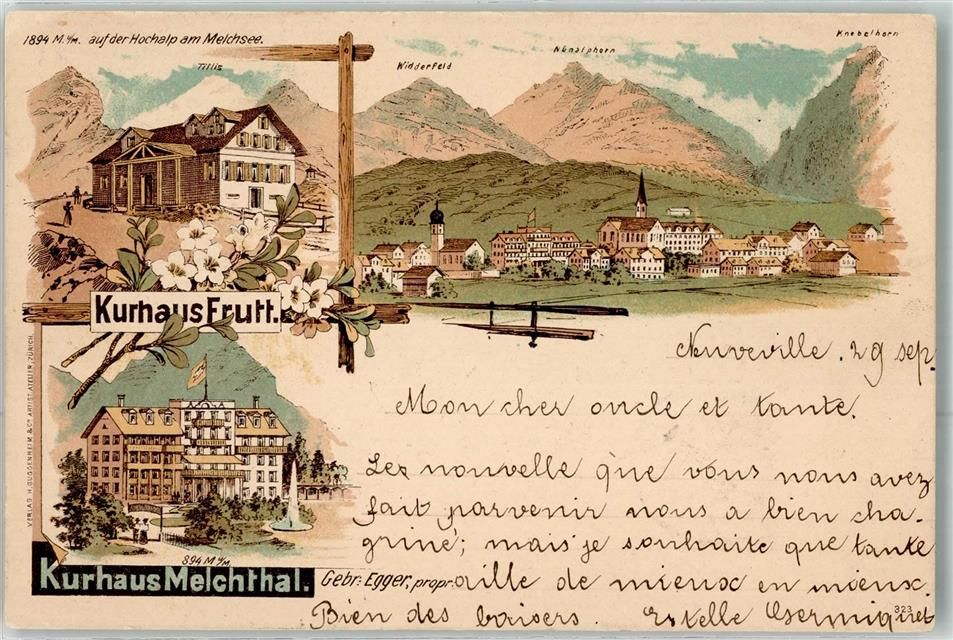 1894 M. ü/M. auf der Hochalp am Melchsee.
Tillis
Widderfeld
Nünalphorn
Knebelhorn
Kurhaus Frutt.
VERLAG H. GUGGENHEIM & Co ARTIST. ATELIER, ZÜRICH.
894 M ü/M
Kurhaus Melchthal.
Gebr: Egger, propr.
Neuveville. 29 sep.
Mon cher oncle et tante.
Lez nouvelle que vous nous avez
fait parvenir nous a bien cha-
griné; mais je souhaite que tante
aille de mieux en mieux.
Bien des baisers. Estelle
323